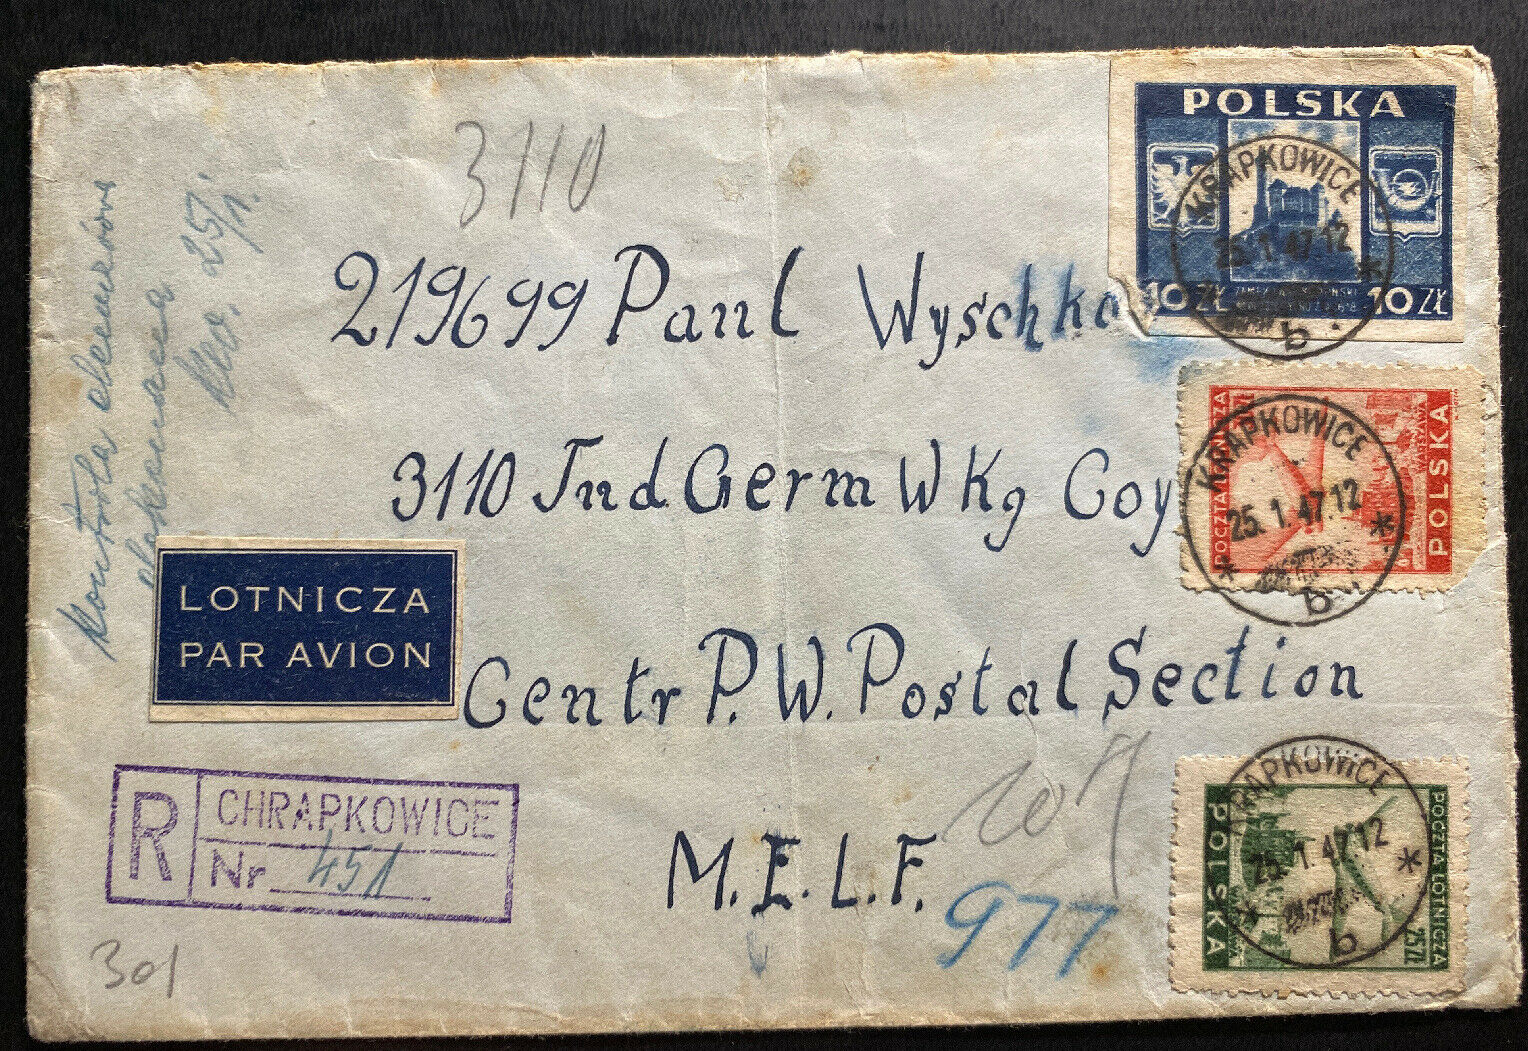 3110
219699 Paul Wyschka
3110 Ind Germ W Kg Coy
Centr P.W. Postal Section
M.E.L.F.
977
301
LOTNICZA
PAR AVION
R
CHRAPKOWICE
Nr 451
25/1.
POLSKA
10 ZŁ 10 ZŁ
KRAPKOWICE
25.1.47.12
b
POCZTA LOTNICZA
WARSZAWA
POLSKA
KRAPKOWICE
25.1.47.12
b
POLSKA
POCZTA LOTNICZA
25 ZŁ
KRAPKOWICE
25.1.47.12
b